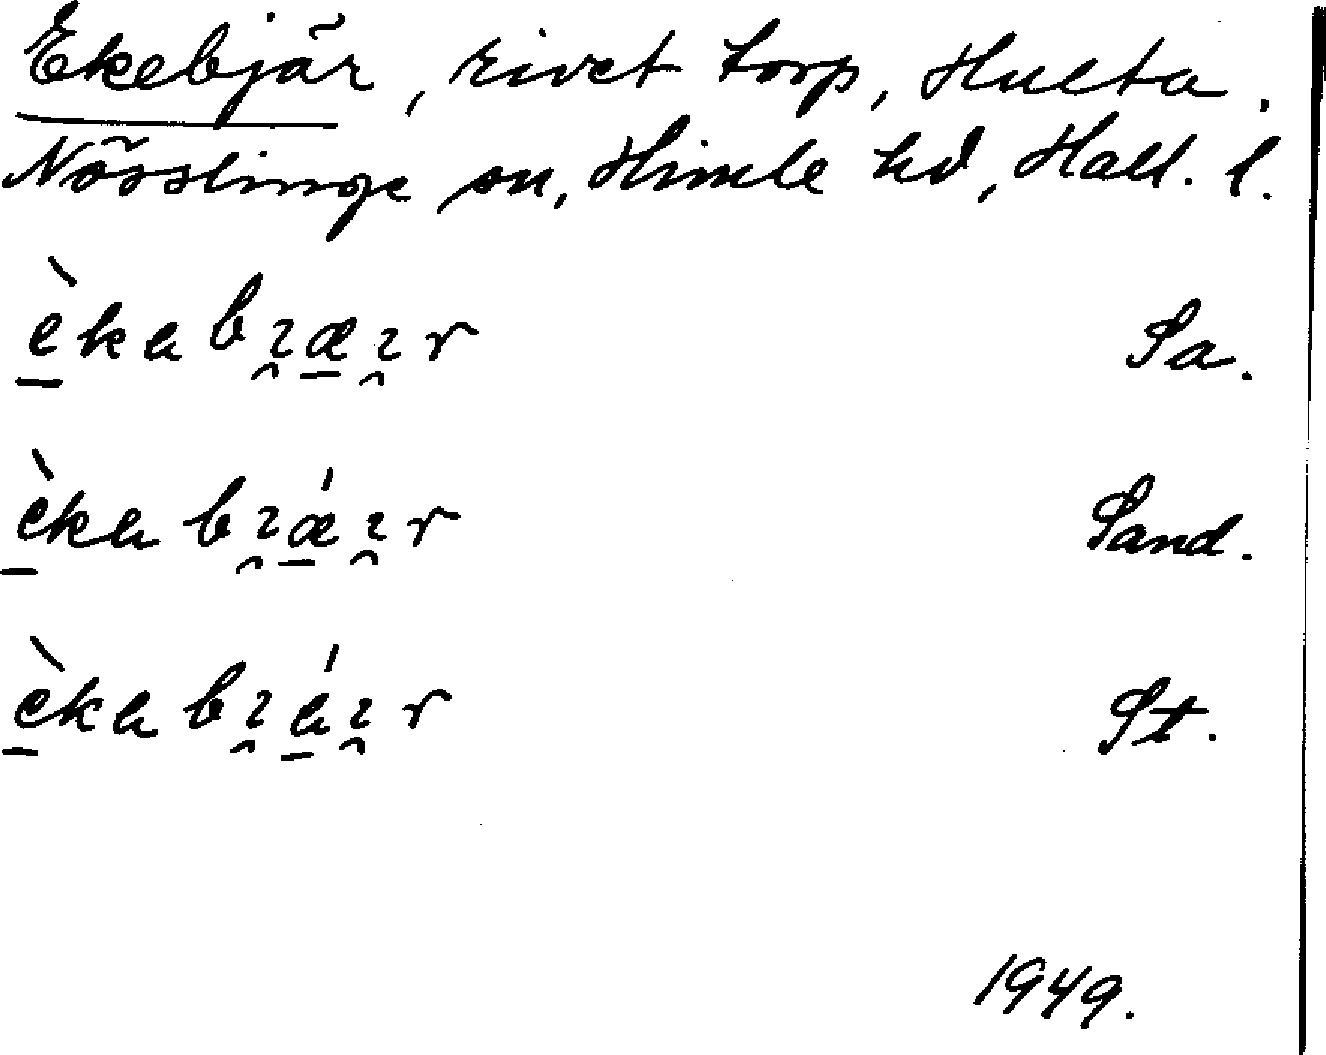 Ekebjär, rivet torp, Hulta.
Nösslinge sn, Himle hd, Hall. l.
èka bɿ̯æɿ̯r Sa.
èka bɿ̯ǽɿ̯r Sand.
èka bɿ̯áɿ̯r St.
1949.